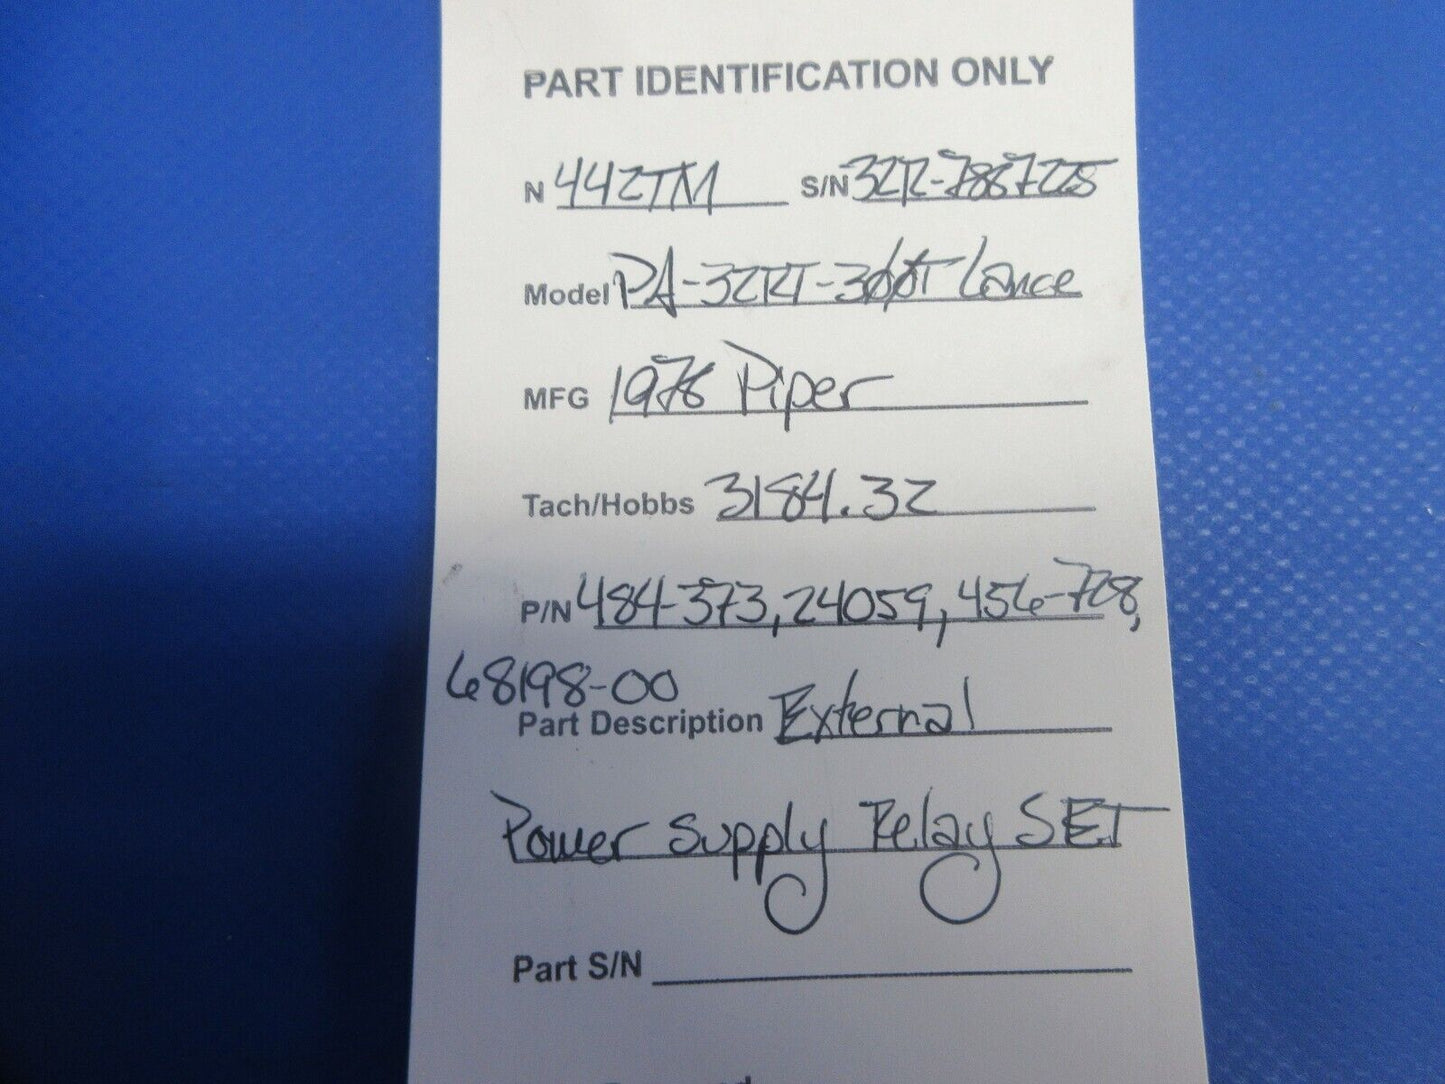 PART IDENTIFICATION ONLY
N 442TM S/N 32R-7887225
Model PA-32RT-300T Lance
MFG 1978 Piper
Tach/Hobbs 3184.32
P/N 484-373, 24059, 456-728,
68198-00
Part Description External
Power Supply Relay SET
Part S/N